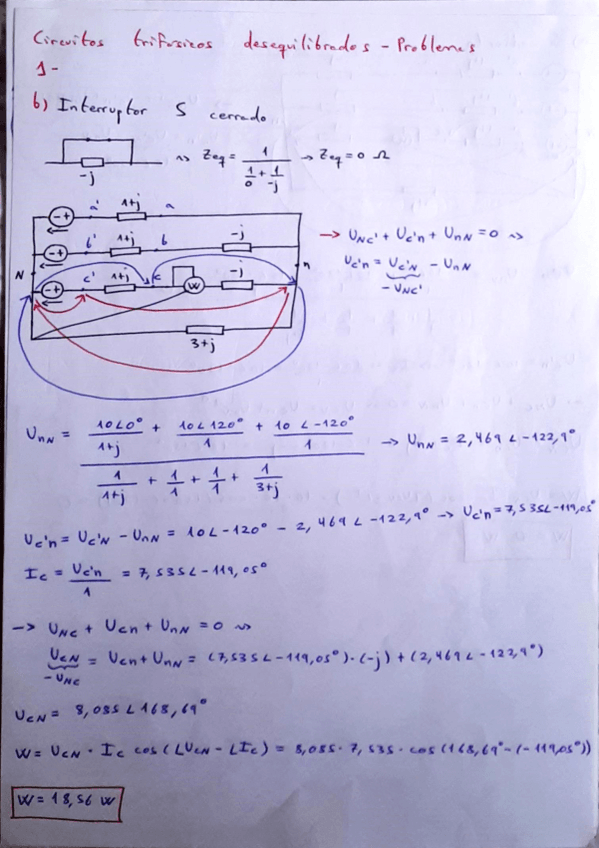 Circuitos trifasicos desequilibrados - Problemas
1-
b) Interruptor S cerrado
-j
⇝ Zeq = 1 / (1/0 + 1/-j) → Zeq = 0 Ω
a' 1+j a
b' 1+j b -j
N c' 1+j c W -j n
3+j
→ U_Nc' + U_c'n + U_nN = 0 ⇝
U_c'n = U_c'N - U_nN
-U_Nc'
U_nN = (10∠0°/1+j + 10∠120°/1 + 10∠-120°/1) / (1/1+j + 1/1 + 1/1 + 1/3+j) → U_nN = 2,469∠-122,9°
U_c'n = U_c'N - U_nN = 10∠-120° - 2,469∠-122,9° → U_c'n = 7,535∠-119,05°
I_c = U_c'n / 1 = 7,535∠-119,05°
→ U_Nc + U_cn + U_nN = 0 ⇝
U_cN = U_cn + U_nN = (7,535∠-119,05°)·(-j) + (2,469∠-122,9°)
-U_Nc
U_cN = 8,055∠168,69°
W = U_cN · I_c cos(∠U_cN - ∠I_c) = 8,055 · 7,535 · cos(168,69° - (-119,05°))
W = 18,56 W